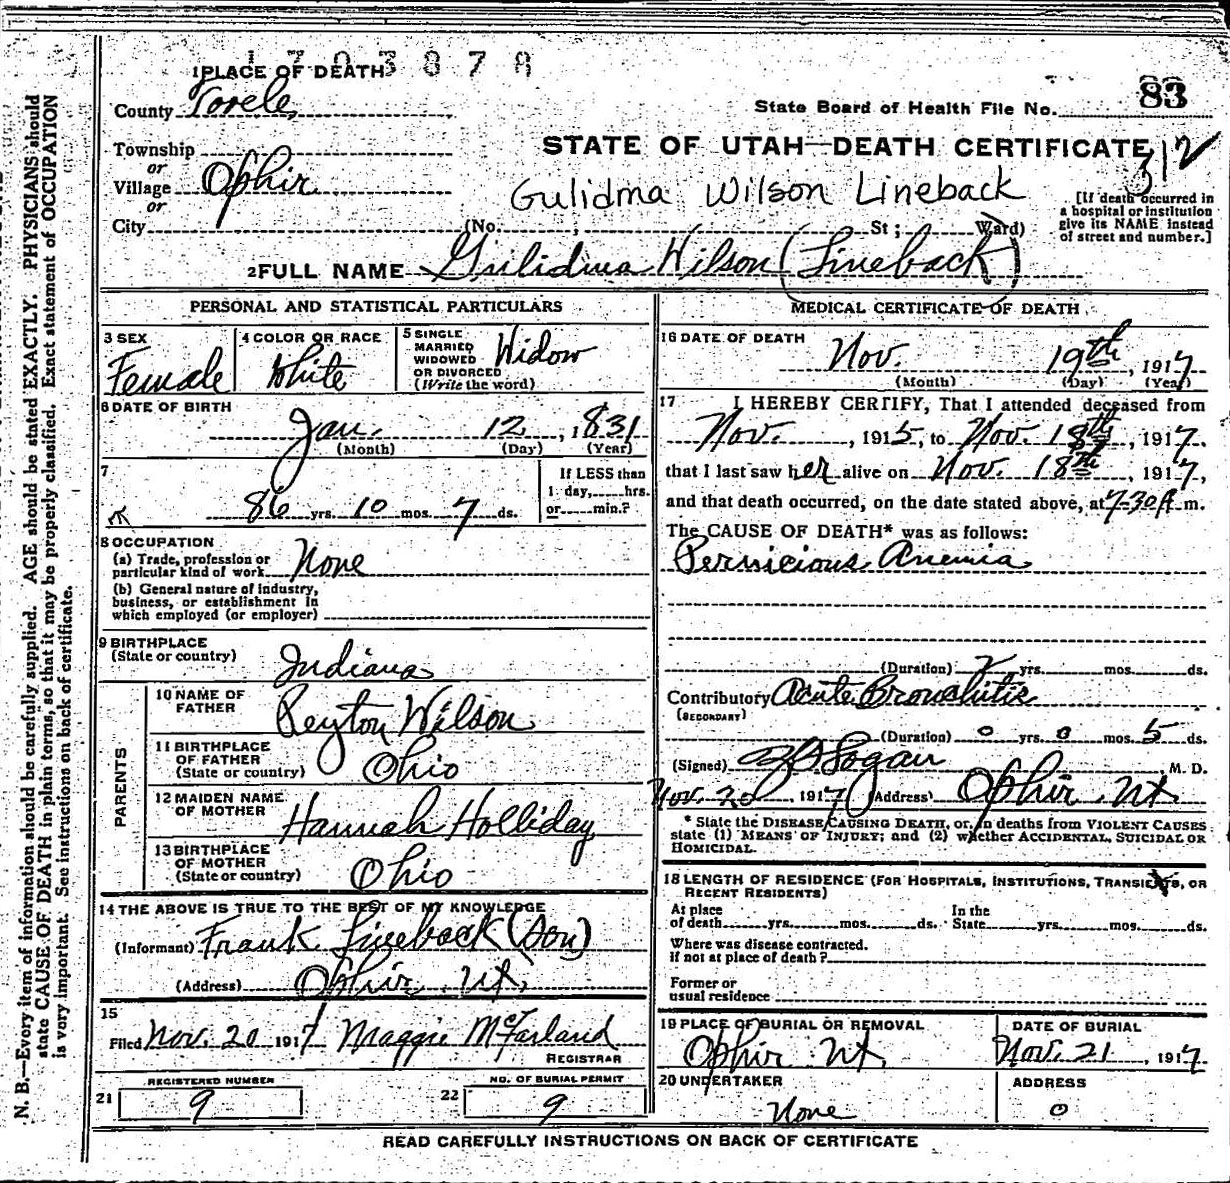 1703878
1 PLACE OF DEATH
County Tooele
State Board of Health File No. 83
Township
or
Village Ophir
or
City
STATE OF UTAH—DEATH CERTIFICATE
312
Gulidma Wilson Lineback
(No. ; St; Ward)
[If death occurred in
a hospital or institution
give its NAME instead
of street and number.]
2 FULL NAME Gulidma Wilson (Lineback)
PERSONAL AND STATISTICAL PARTICULARS
3 SEX
Female
4 COLOR OR RACE
White
5 SINGLE
MARRIED
WIDOWED
OR DIVORCED
(Write the word)
Widow
6 DATE OF BIRTH
Jan. 12, 1831
(Month) (Day) (Year)
7
86 yrs. 10 mos. 7 ds.
If LESS than
1 day, hrs.
or min.?
8 OCCUPATION
(a) Trade, profession or
particular kind of work None
(b) General nature of industry,
business, or establishment in
which employed (or employer)
9 BIRTHPLACE
(State or country)
Indiana
PARENTS
10 NAME OF
FATHER
Peyton Wilson
11 BIRTHPLACE
OF FATHER
(State or country)
Ohio
12 MAIDEN NAME
OF MOTHER
Hannah Holliday
13 BIRTHPLACE
OF MOTHER
(State or country)
Ohio
14 THE ABOVE IS TRUE TO THE BEST OF MY KNOWLEDGE
(Informant) Frank Lineback (Son)
(Address) Ophir Ut,
15
Filed Nov. 20 1917 Maggie McFarland
REGISTRAR
21
REGISTERED NUMBER
9
22
NO. OF BURIAL PERMIT
9
MEDICAL CERTIFICATE OF DEATH
16 DATE OF DEATH
Nov. 19th, 1917
(Month) (Day) (Year)
17 I HEREBY CERTIFY, That I attended deceased from
Nov. , 1915, to Nov. 18th, 1917,
that I last saw her alive on Nov. 18th, 1917,
and that death occurred, on the date stated above, at 7-30 A.m.
The CAUSE OF DEATH* was as follows:
Pernicious Anemia
(Duration) 2 yrs. mos. ds.
Contributory Acute Bronchitis
(SECONDARY)
(Duration) 0 yrs. 0 mos. 5 ds.
(Signed) Logan M. D.
Nov. 20, 1917 (Address) Ophir Ut
* State the DISEASE CAUSING DEATH, or, in deaths from VIOLENT CAUSES
state (1) MEANS OF INJURY; and (2) whether ACCIDENTAL, SUICIDAL OR
HOMICIDAL.
18 LENGTH OF RESIDENCE (FOR HOSPITALS, INSTITUTIONS, TRANSIENTS, OR
RECENT RESIDENTS)
At place
of death yrs. mos. ds.
In the
State yrs. mos. ds.
Where was disease contracted.
if not at place of death?
Former or
usual residence
19 PLACE OF BURIAL OR REMOVAL
Ophir Ut.
DATE OF BURIAL
Nov. 21, 1917
20 UNDERTAKER
None
ADDRESS
0
READ CAREFULLY INSTRUCTIONS ON BACK OF CERTIFICATE
N. B.—Every item of information should be carefully supplied. AGE should be stated EXACTLY. PHYSICIANS should
state CAUSE OF DEATH in plain terms, so that it may be properly classified. Exact statement of OCCUPATION
is very important. See instructions on back of certificate.